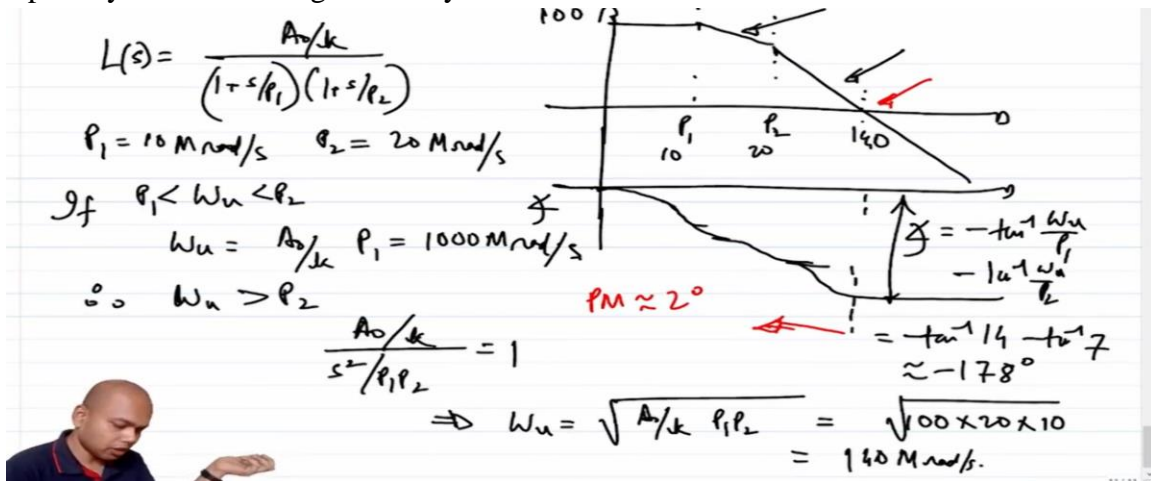 L(s) = A₀/k / (1+s/p₁)(1+s/p₂)
P₁ = 10 Mrad/s P₂ = 20 Mrad/s
If P₁ < Wu < P₂
Wu = A₀/k P₁ = 1000 Mrad/s
∴ Wu > P₂
A₀/k / s²/P₁P₂ = 1
⇒ Wu = √A₀/k P₁P₂ = √100×20×10
= 140 Mrad/s.
100
P₁ P₂ 140
10 20
∡
∡ = -tan⁻¹ Wu/P₁
- tan⁻¹ Wu/P₂
PM ≈ 2°
= -tan⁻¹ 14 - tan⁻¹ 7
≈ -178°